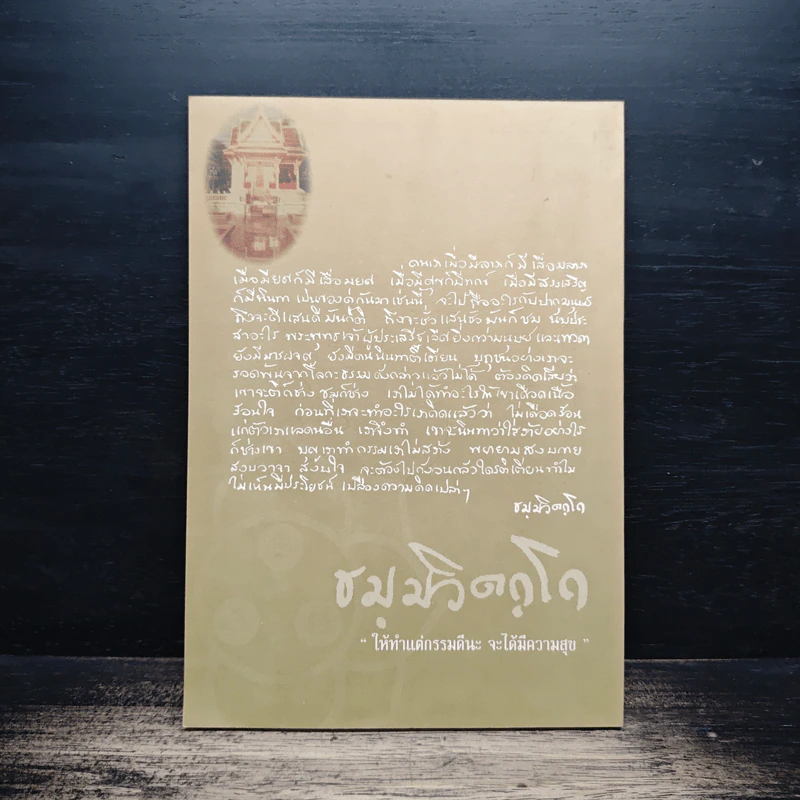 คนเราเมื่อมีลาภก็มีเสื่อมลาภ
เมื่อมียศก็มีเสื่อมยศ เมื่อมีสุขก็มีทุกข์ เมื่อมีสรรเสริญ
ก็มีนินทา เป็นของคู่กันมาเช่นนี้ จะไปถืออะไรกับปากมนุษย์
ถึงจะดีแสนดีมันก็ติ ถึงจะชั่วแสนชั่วมันก็ชม นับประ
สาอะไร พระพุทธเจ้าผู้ประเสริฐเลิศยิ่งกว่ามนุษย์และเทวดา
ยังมีมารผจญ ยังมีคนนินทาติเตียน ปุถุชนอย่างเราจะ
รอดพ้นจากโลกะธรรมดังกล่าวแล้วไม่ได้ ต้องคิดเสียว่า
เขาจะติก็ช่าง ชมก็ช่าง เราไม่ได้ทำอะไรให้เขาเดือดเนื้อ
ร้อนใจ ก่อนที่เราจะทำอะไรเราคิดแล้วว่า ไม่เดือดร้อน
แก่ตัวเราและคนอื่น เราจึงทำ เขาจะนินทาว่าใส่ร้ายอย่างไร
ก็ช่างเขา บุญเราทำกรรมเราไม่สร้าง พยายามสงบกาย
สงบวาจา สงบใจ จะต้องไปกังวนกลัวใครติเตียนทำไม
ไม่เห็นมีประโยชน์ เปลืองความคิดเปล่าๆ
ธมฺมวิตกฺโก
ธมฺมวิตกฺโก
“ ให้ทำแต่กรรมดีนะ จะได้มีความสุข ”